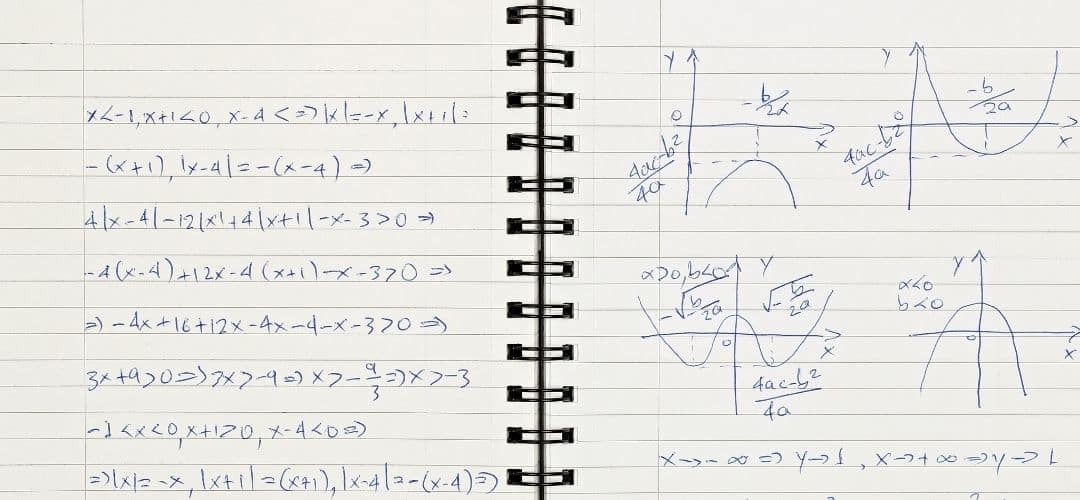 x<-1, x+1<0, x-4<=>|x|=-x, |x+1|=
-(x+1), |x-4|=-(x-4) =>
4|x-4|-12|x|+4|x+1|-x-3>0 =>
-4(x-4)+12x-4(x+1)-x-3>0 =>
=> -4x+16+12x-4x-4-x-3>0 =>
3x+9>0 => 3x>-9 => x>-9/3 => x>-3
-1<x<0, x+1>0, x-4<0 =>
=> |x|=-x, |x+1|=(x+1), |x-4|=-(x-4) =>
y
-b/2a
0
x
4ac-b²/4a
y
-b/2a
0
x
4ac-b²/4a
α>0, b<0
y
-√-b/2a
√-b/2a
0
x
4ac-b²/4a
α<0
b<0
y
0
x
x→-∞ => y→1, x→+∞ => y→1